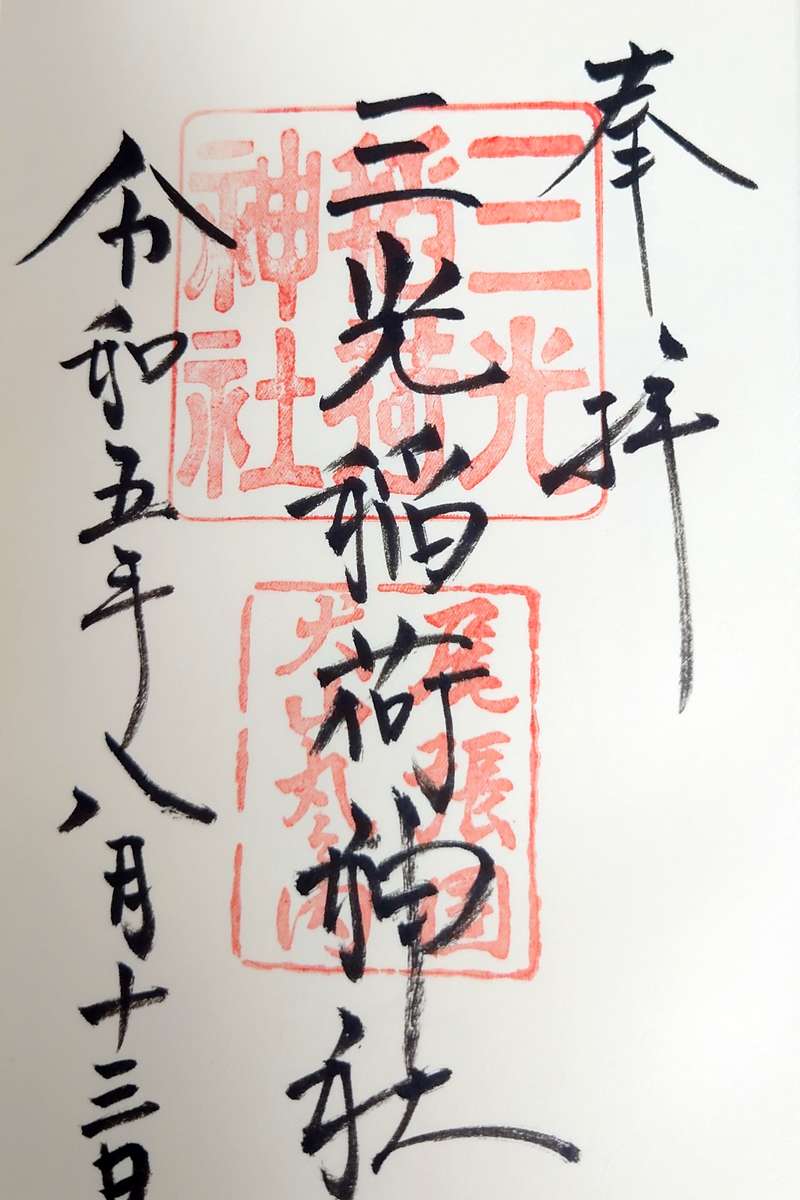 奉拝
三光稲荷神社
令和五年八月十三日
三光
稲荷
神社
尾張国
犬山丸の内